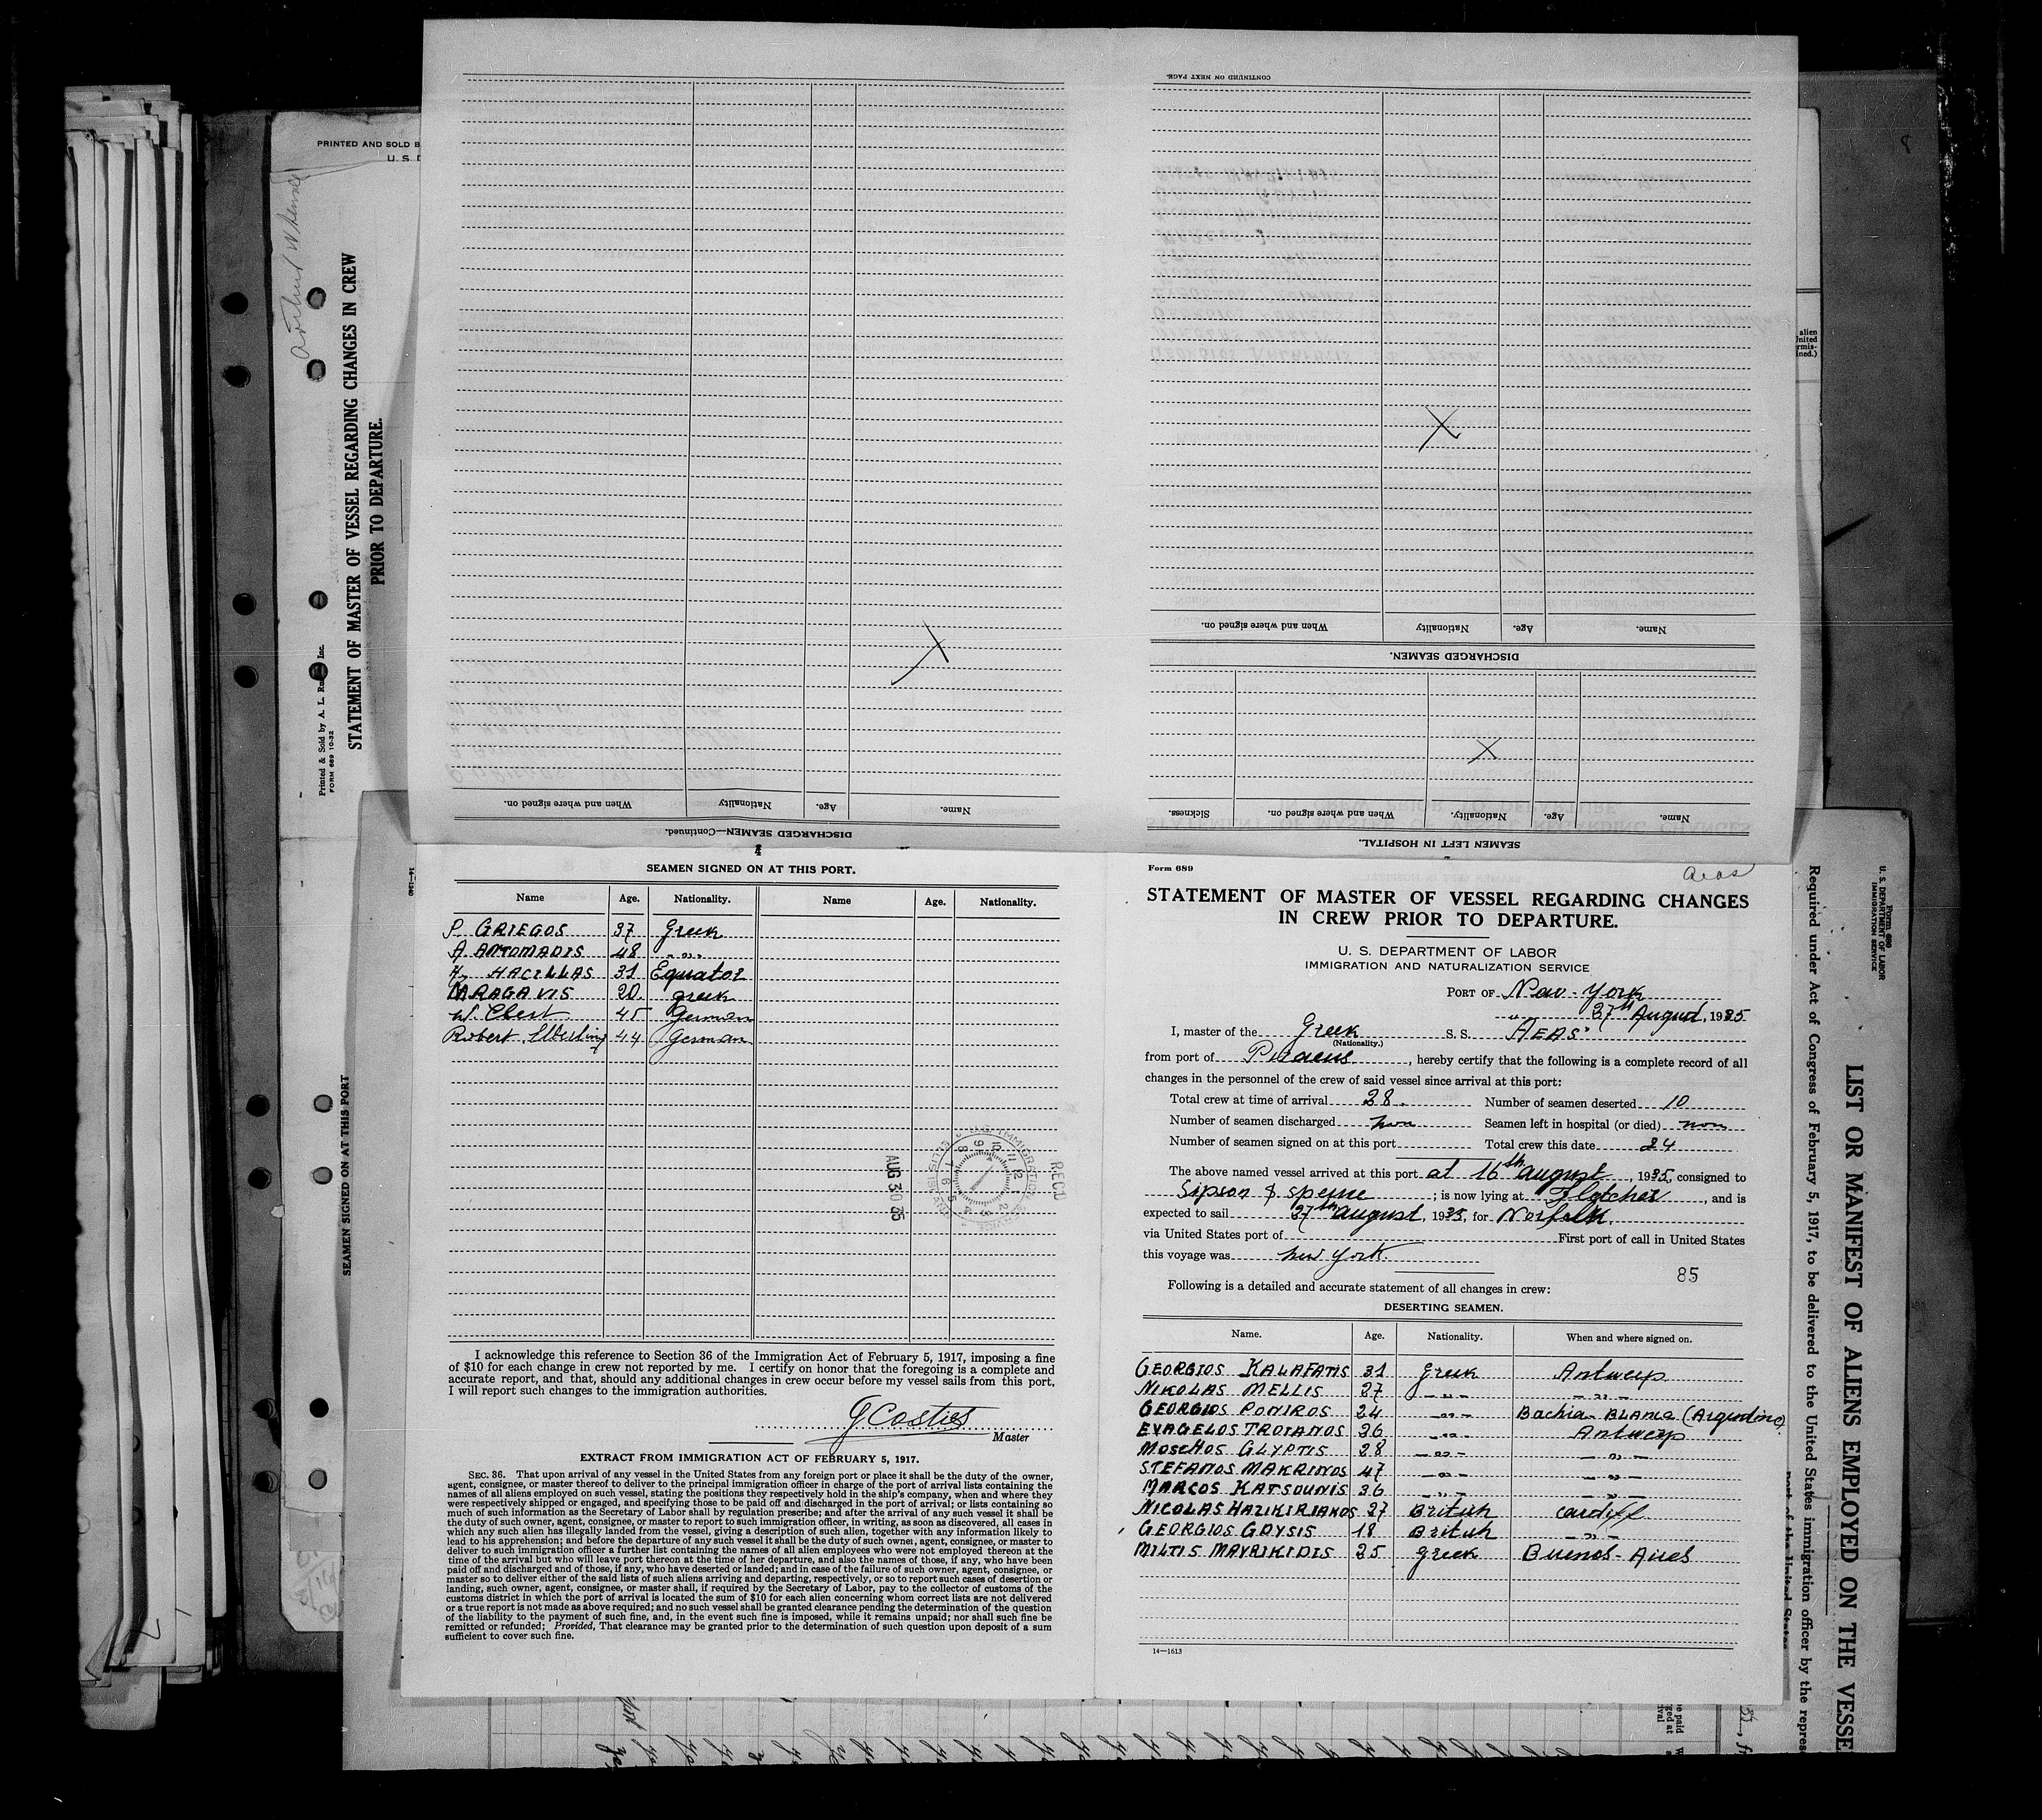 SEAMEN SIGNED ON AT THIS PORT.
Name Age. Nationality. Name Age. Nationality.
P. GRIEGOS 37 Greek
A. ANTOMADIS 48 -"-
H. HACILLAS 31 Equator
MRAGAVIS 20 greek
W. Clest 45 German
Robert 44 German
RECD
AUG 30 35
U.S. IMMIGRATION SERVICE
I acknowledge this reference to Section 36 of the Immigration Act of February 5, 1917, imposing a fine
of $10 for each change in crew not reported by me. I certify on honor that the foregoing is a complete and
accurate report, and that, should any additional changes in crew occur before my vessel sails from this port,
I will report such changes to the immigration authorities.
G Costies
Master
EXTRACT FROM IMMIGRATION ACT OF FEBRUARY 5, 1917.
SEC. 36. That upon arrival of any vessel in the United States from any foreign port or place it shall be the duty of the owner,
agent, consignee, or master thereof to deliver to the principal immigration officer in charge of the port of arrival lists containing the
names of all aliens employed on such vessel, stating the positions they respectively hold in the ship's company, when and where they
were respectively shipped or engaged, and specifying those to be paid off and discharged in the port of arrival; or lists containing so
much of such information as the Secretary of Labor shall by regulation prescribe; and after the arrival of any such vessel it shall be
the duty of such owner, agent, consignee, or master to report to such immigration officer, in writing, as soon as discovered, all cases in
which any such alien has illegally landed from the vessel, giving a description of such alien, together with any information likely to
lead to his apprehension; and before the departure of any such vessel it shall be the duty of such owner, agent, consignee, or master to
deliver to such immigration officer a further list containing the names of all alien employees who were not employed thereon at the
time of the arrival but who will leave port thereon at the time of her departure, and also the names of those, if any, who have been
paid off and discharged and of those, if any, who have deserted or landed; and in case of the failure of such owner, agent, consignee, or
master so to deliver either of the said lists of such aliens arriving and departing, respectively, or so to report such cases of desertion or
landing, such owner, agent, consignee, or master shall, if required by the Secretary of Labor, pay to the collector of customs of the
customs district in which the port of arrival is located the sum of $10 for each alien concerning whom correct lists are not delivered
or a true report is not made as above required; and no such vessel shall be granted clearance pending the determination of the question
of the liability to the payment of such fine, and, in the event such fine is imposed, while it remains unpaid; nor shall such fine be
remitted or refunded; Provided, That clearance may be granted prior to the determination of such question upon deposit of a sum
sufficient to cover such fine.
Form 689
Aeas
STATEMENT OF MASTER OF VESSEL REGARDING CHANGES
IN CREW PRIOR TO DEPARTURE.
U. S. DEPARTMENT OF LABOR
IMMIGRATION AND NATURALIZATION SERVICE
PORT OF New-York
27th August, 1935
I, master of the Greek S. S. AEAS
(Nationality.)
from port of Piraeus, hereby certify that the following is a complete record of all
changes in the personnel of the crew of said vessel since arrival at this port:
Total crew at time of arrival 28. Number of seamen deserted 10
Number of seamen discharged non Seamen left in hospital (or died) non
Number of seamen signed on at this port Total crew this date 24
The above named vessel arrived at this port at 16th august, 1935, consigned to
Sipson & spense; is now lying at Fletcher, and is
expected to sail 27th august, 1935, for Norfolk.
via United States port of First port of call in United States
this voyage was new york.
85
Following is a detailed and accurate statement of all changes in crew:
DESERTING SEAMEN.
Name. Age. Nationality. When and where signed on.
GEORGIOS KALAFATIS 31 Greek Antwerp
NIKOLAS MELLIS 27 -"- -"-
GEORGIOS PONIROS 24 -"- Bachia-BLANCA (Argentina)
EVAGELOS TROIANOS 36 -"- Antwerp
MOSCHOS GLYPTIS 28 -"- -"-
STEFANOS MAKRINOS 47 -"- -"-
MARCOS KATSOUNIS 36 -"- -"-
NICOLAS HAZIKIRIAKOS 27 British Cardiff
GEORGIOS GAYSIS 18 British -"-
MILTIS MAVRIKIDIS 25 greek Buenos-Aires
14—1613
CONTINUED ON NEXT PAGE.
SEAMEN LEFT IN HOSPITAL.
Name. Age. Nationality. When and where signed on. Sickness.
X
DISCHARGED SEAMEN.
Name. Age. Nationality When and where signed on.
X
DISCHARGED SEAMEN—Continued.
Name. Age. Nationality When and where signed on.
X
PRINTED AND SOLD B
U. S. D
STATEMENT OF MASTER OF VESSEL REGARDING CHANGES IN CREW
PRIOR TO DEPARTURE.
Printed & Sold by A. L. Ru Inc.
FORM 689 10-32
SEAMEN SIGNED ON AT THIS PORT
14—1240
Form 680
U. S. DEPARTMENT OF LABOR
IMMIGRATION SERVICE
LIST OR MANIFEST OF ALIENS EMPLOYED ON THE VESSE
Required under Act of Congress of February 5, 1917, to be delivered to the United States immigration officer by the repres